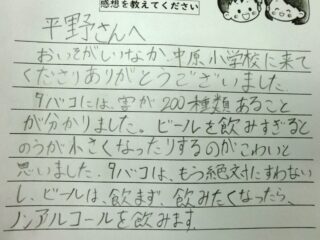 感想を教えてください
平野さんへ
おいそがしいなか、中原小学校に来て
くださりありがとうございました。
タバコには、害が200種類あること
が分かりました。ビールを飲みすぎると
のうが小さくなったりするのがこわいと
思いました。タバコは、もう絶対にすわない
し、ビールは、飲まず、飲みたくなったら、
ノンアルコールを飲みます。